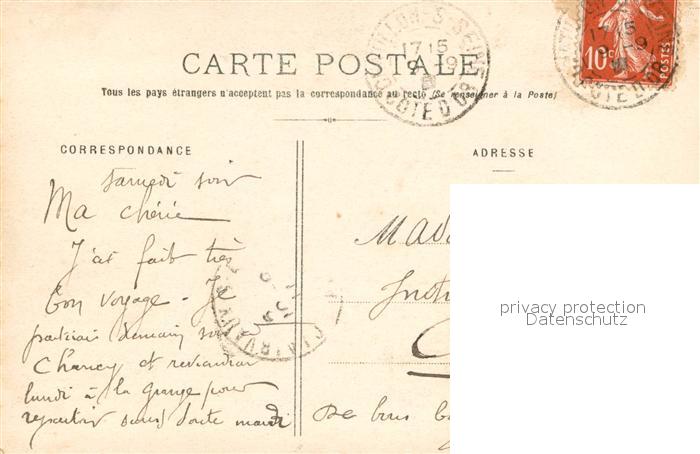 CARTE POSTALE
Tous les pays étrangers n'acceptent pas la correspondance au recto (Se renseigner à la Poste)
CORRESPONDANCE
ADRESSE
10c
POSTES
17 15
CLAIRVAUX
Samedi soir
Ma chérie
J'ai fait très
bon voyage - Je
partirai demain
Chancey et reviendrai
lundi à la Grange pour
repartir sans doute mardi
De bons
privacy protection
Datenschutz